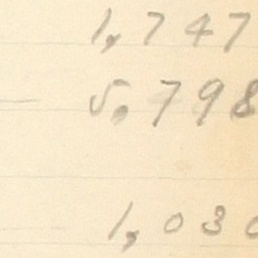 1,747
5,798
1,030